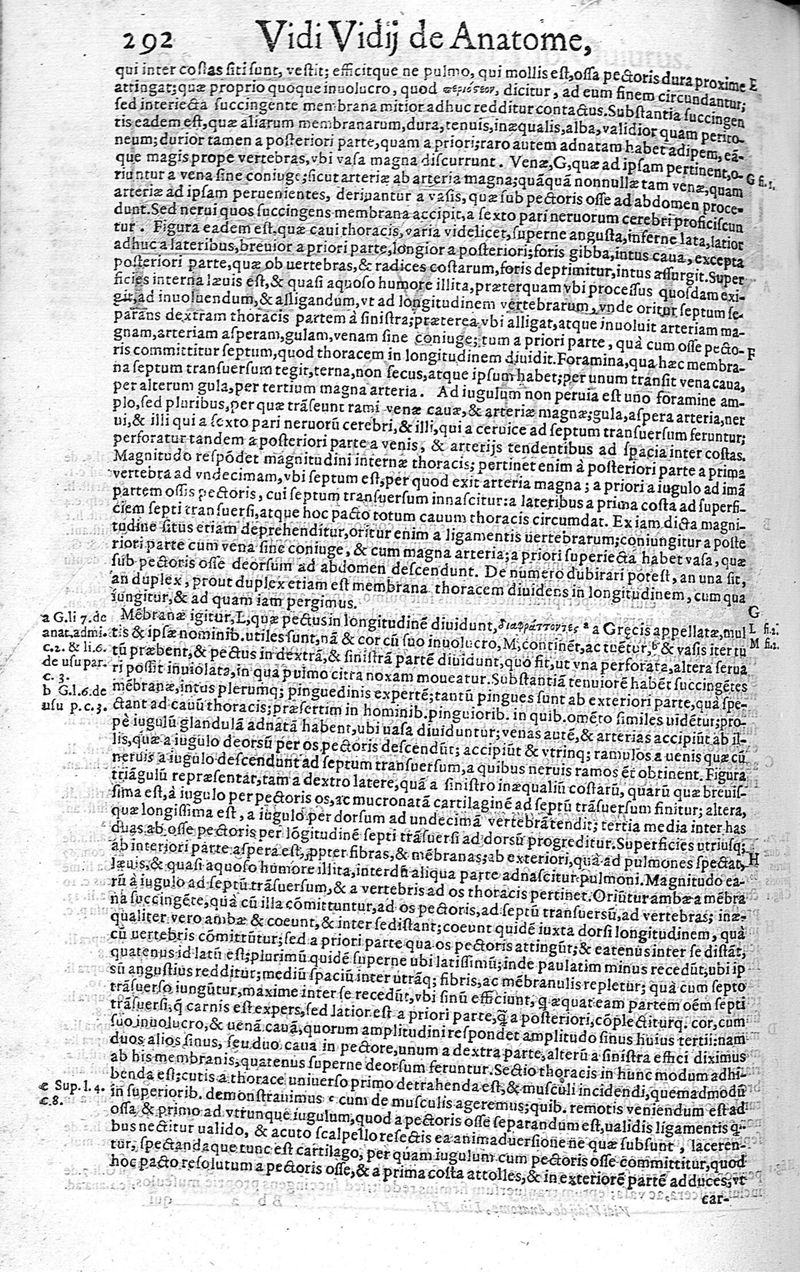 292 Vidi Vidij de Anatome,
qui inter costas siti sunt, vestit; efficitque ne pulmo, qui mollis est, ossa pectoris dura proxime E
attingat; quæ proprio quoque inuolucro, quod περιόστεον, dicitur, ad eum finem circundantur;
sed interiecta succingente membrana mitior adhuc redditur contactus. Substantia succingen
tis eadem est, quæ aliarum membranarum, dura, tenuis, inæqualis, alba, validior quam perito-
neum; durior tamen a posteriori parte, quam a priori; raro autem adnatam habet adipem, eá-
que magis prope vertebras, vbi vasa magna discurrunt. Venæ, G, quæ ad ipsam pertinent, o- G fi. 1.
riuntur a vena sine coniuge; sicut arteriæ ab arteria magna; quãquã nonnullæ tam venæ, quam
arteriæ ad ipsam peruenientes, deriuantur a vasis, quæ sub pectoris osse ad abdomen proce-
dunt. Sed nerui quos succingens membrana accipit, a sexto pari neruorum cerebri proficiscun
tur. Figura eadem est, quæ caui thoracis, varia videlicet, superne angusta, inferne lata, latior
adhuc a lateribus, breuior a priori parte, longior a posteriori; foris gibba, intus caua, excepta
posteriori parte, quæ ob uertebras, & radices costarum, foris deprimitur, intus assurgit. Super
ficies interna læuis est, & quasi aquoso humore illita, præterquam vbi processus quosdam exi-
git, ad inuoluendum, & alligandum, vt ad longitudinem vertebrarum, vnde oritur septum se-
parans dextram thoracis partem à sinistra; præterea vbi alligat, atque inuoluit arteriam ma-
gnam, arteriam asperam, gulam, venam sine coniuge; tum a priori parte, quà cum osse pecto- F
ris committitur septum, quod thoracem in longitudinem diuidit. Foramina, qua hæc membra-
na septum transuersum tegit, terna, non secus, atque ipsum habet; per unum transit vena caua,
per alterum gula, per tertium magna arteria. Ad iugulum non peruia est uno foramine am-
plo, sed pluribus, per quæ trãseunt rami venæ cauæ, & arteriæ magnæ; gula, aspera arteria, ner
ui, & illi qui a sexto pari neruorũ cerebri, & illi, qui a ceruice ad septum transuersum feruntur;
perforatur tandem a posteriori parte a venis, & arterijs tendentibus ad spacia inter costas.
Magnitudo respõdet magnitudini internæ thoracis; pertinet enim à posteriori parte a prima
vertebra ad vndecimam, vbi septum est, per quod exit arteria magna; a priori a iugulo ad imã
partem ossis pectoris, cui septum transuersum innascitur: a lateribus a prima costa ad superfi-
ciem septi transuersi, atque hoc pacto totum cauum thoracis circumdat. Ex iam dicta magni-
tudine situs etiam deprehenditur, oritur enim a ligamentis uertebrarum; coniungitur a poste
riori parte cum vena sine coniuge, & cum magna arteria; a priori superiectá habet vasa, quæ
sub pectoris osse deorsum ad abdomen descendunt. De numero dubitari potest, an una sit,
an duplex, prout duplex etiam est membrana thoracem diuidens in longitudinem, cum qua
iungitur, & ad quam iam pergimus. G
a G. li 7. de Mẽbranæ igitur, L, quæ pectus in longitudinẽ diuidunt, διαφράττοντες a a Grecis appellatæ, mul L fi. 1.
anat. admi. tis & ipsæ nominib. utiles sunt, nã & cor cũ suo inuolucro, M, continẽt, ac tuẽtur, b & vasis iter tu M fi. 1.
c. 2. & li. 6. tũ præbent, & pectus in dextrã, & sinistrã partẽ diuidunt, quo fit, ut vna perforata, altera serua
de usu par. ri possit inuiolata, in qua pulmo citra noxam moueatur. Substantiã tenuiorẽ habẽt succingẽtes
c. 3. mẽbranæ, intus plerumq; pinguedinis expertẽ; tantũ pingues sunt ab exteriori parte, quà spe-
b G. l. 6. de ctant ad cauũ thoracis; præsertim in hominib. pinguiorib. in quib. omẽto similes uidẽtur; pro-
usu p. c. 3. pè iugulũ glandulã adnatã habent, ubi uasa diuiduntur; venas autẽ, & arterias accipiũt ab il-
lis, quæ a iugulo deorsũ per os pectoris descendũt; accipiũt & vtrinq; ramulos a uenis quæ cũ
neruis a iugulo descendunt ad septum transuersum, a quibus neruis ramos ẽt obtinent. Figura
triãgulũ repræsentat, tam a dextro latere, quã a sinistro inæqualiũ costarũ, quarũ quæ breuis-
sima est, à iugulo per pectoris os, ac mucronatã cartilaginẽ ad septũ trãsuersum finitur; altera,
quæ longissima est, a iugulo per dorsum ad undecimã vertebrã tendit; tertia media inter has
duas ab osse pectoris per lõgitudinẽ septi trãsuersi ad dorsũ progreditur. Superficies utriusq;
ab interiori parte aspera est, ꝓpter fibras, & mẽbranas; ab exteriori, quà ad pulmones spectat, H
læuis, & quasi aquoso humore illita, interdũ aliqua parte adnascitur pulmoni. Magnitudo ea-
rũ à iugulo ad septũ trãsuersum, & a vertebris ad os thoracis pertinet. Oriũtur ambæ a mẽbra
na succingẽte, quà cũ illa cõmittuntur, ad os pectoris, ad septũ transuersũ, ad vertebras; inæ-
qualiter vero ambæ & coeunt, & inter se distant; coeunt quidẽ iuxta dorsi longitudinem, quà
cũ vertebris cõmittũtur; sed a priori parte qua os pectoris attingũt; & eatenus inter se distãt,
quatenus id latũ est; plurimũ quidẽ superne ubi latissimũ; inde paulatim minus recedũt; ubi ip
sũ angustius redditur; mediũ spaciũ inter utrãq; fibris, ac mẽbranulis repletur; quà cum septo
trãsuerso iungũtur, maxime inter se recedũt, vbi sinũ efficiunt, q̃ æquat eam partem oẽm septi
trãsuersi, q̃ carnis est expers, sed latior est a priori parte, q̃ a posteriori, cõplectiturq. cor, cum
suo inuolucro, & uenã cauã, quorum amplitudini respondet amplitudo sinus huius tertii; nam
duos alios sinus, seu duo caua in pectore, unum a dextra parte, alterũ à sinistra effici diximus
ab his membranis, quatenus superne deorsum feruntur. Sectio thoracis in hunc modum adhi-
benda est; cutis a thorace uniuerso primo detrahenda est, & musculi incidendi, quemadmodũ
c Sup. l. 4. in superiorib. demonstrauimus c cum de musculis ageremus; quib. remotis veniendum est ad
c. 8. ossa & primo ad vtrunque iugulum, quod a pectoris osse separandum est, ualidis ligamentis q-
bus nectitur ualido, & acuto scalpello resectis ea animaduersione ne quæ subsunt, laceren-
tur, spectandaque tunc est cartilago, per quam iugulum cum pectoris osse committitur, quod
hoc pacto resolutum a pectoris osse, & a prima costa attolles, & in exteriorẽ partẽ adduces, vt
car-